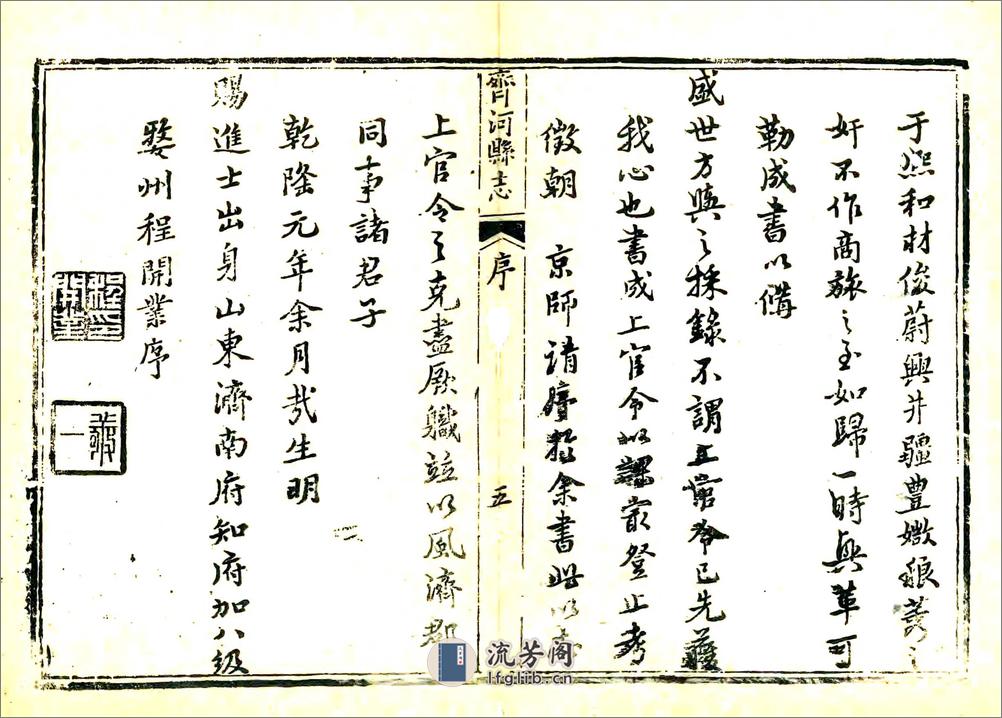 于熙和材俊蔚興井疆豊媺粮莠之
奸不作商旅之至如歸一時興革可
勒成書以備
盛世方輿之採錄不謂上官令已先
我心也書成上官令以最登上考
徵朝 京師請序於余書此以
齊河縣志
序
五
上官令之克盡厥職竝以風濟郡
同事諸君子
乾隆元年余月哉生明
賜進士出身山東濟南府知府加八級
婺州程開業序
程開業印
一
流芳阁
lfglib.cn